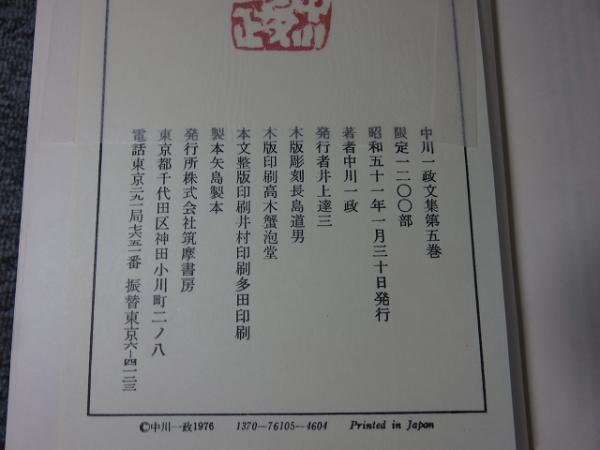 中川一政
中川一政文集第五巻
限定一二〇〇部
昭和五十一年一月三十日発行
著者中川一政
発行者井上達三
木版彫刻長島道男
木版印刷高木蟹泡堂
本文整版印刷井村印刷多田印刷
製本矢島製本
発行所株式会社筑摩書房
東京都千代田区神田小川町二ノ八
電話東京二九一局七六五一番 振替東京六―四一二三
©中川一政1976 1370―76105―4604 Printed in Japan